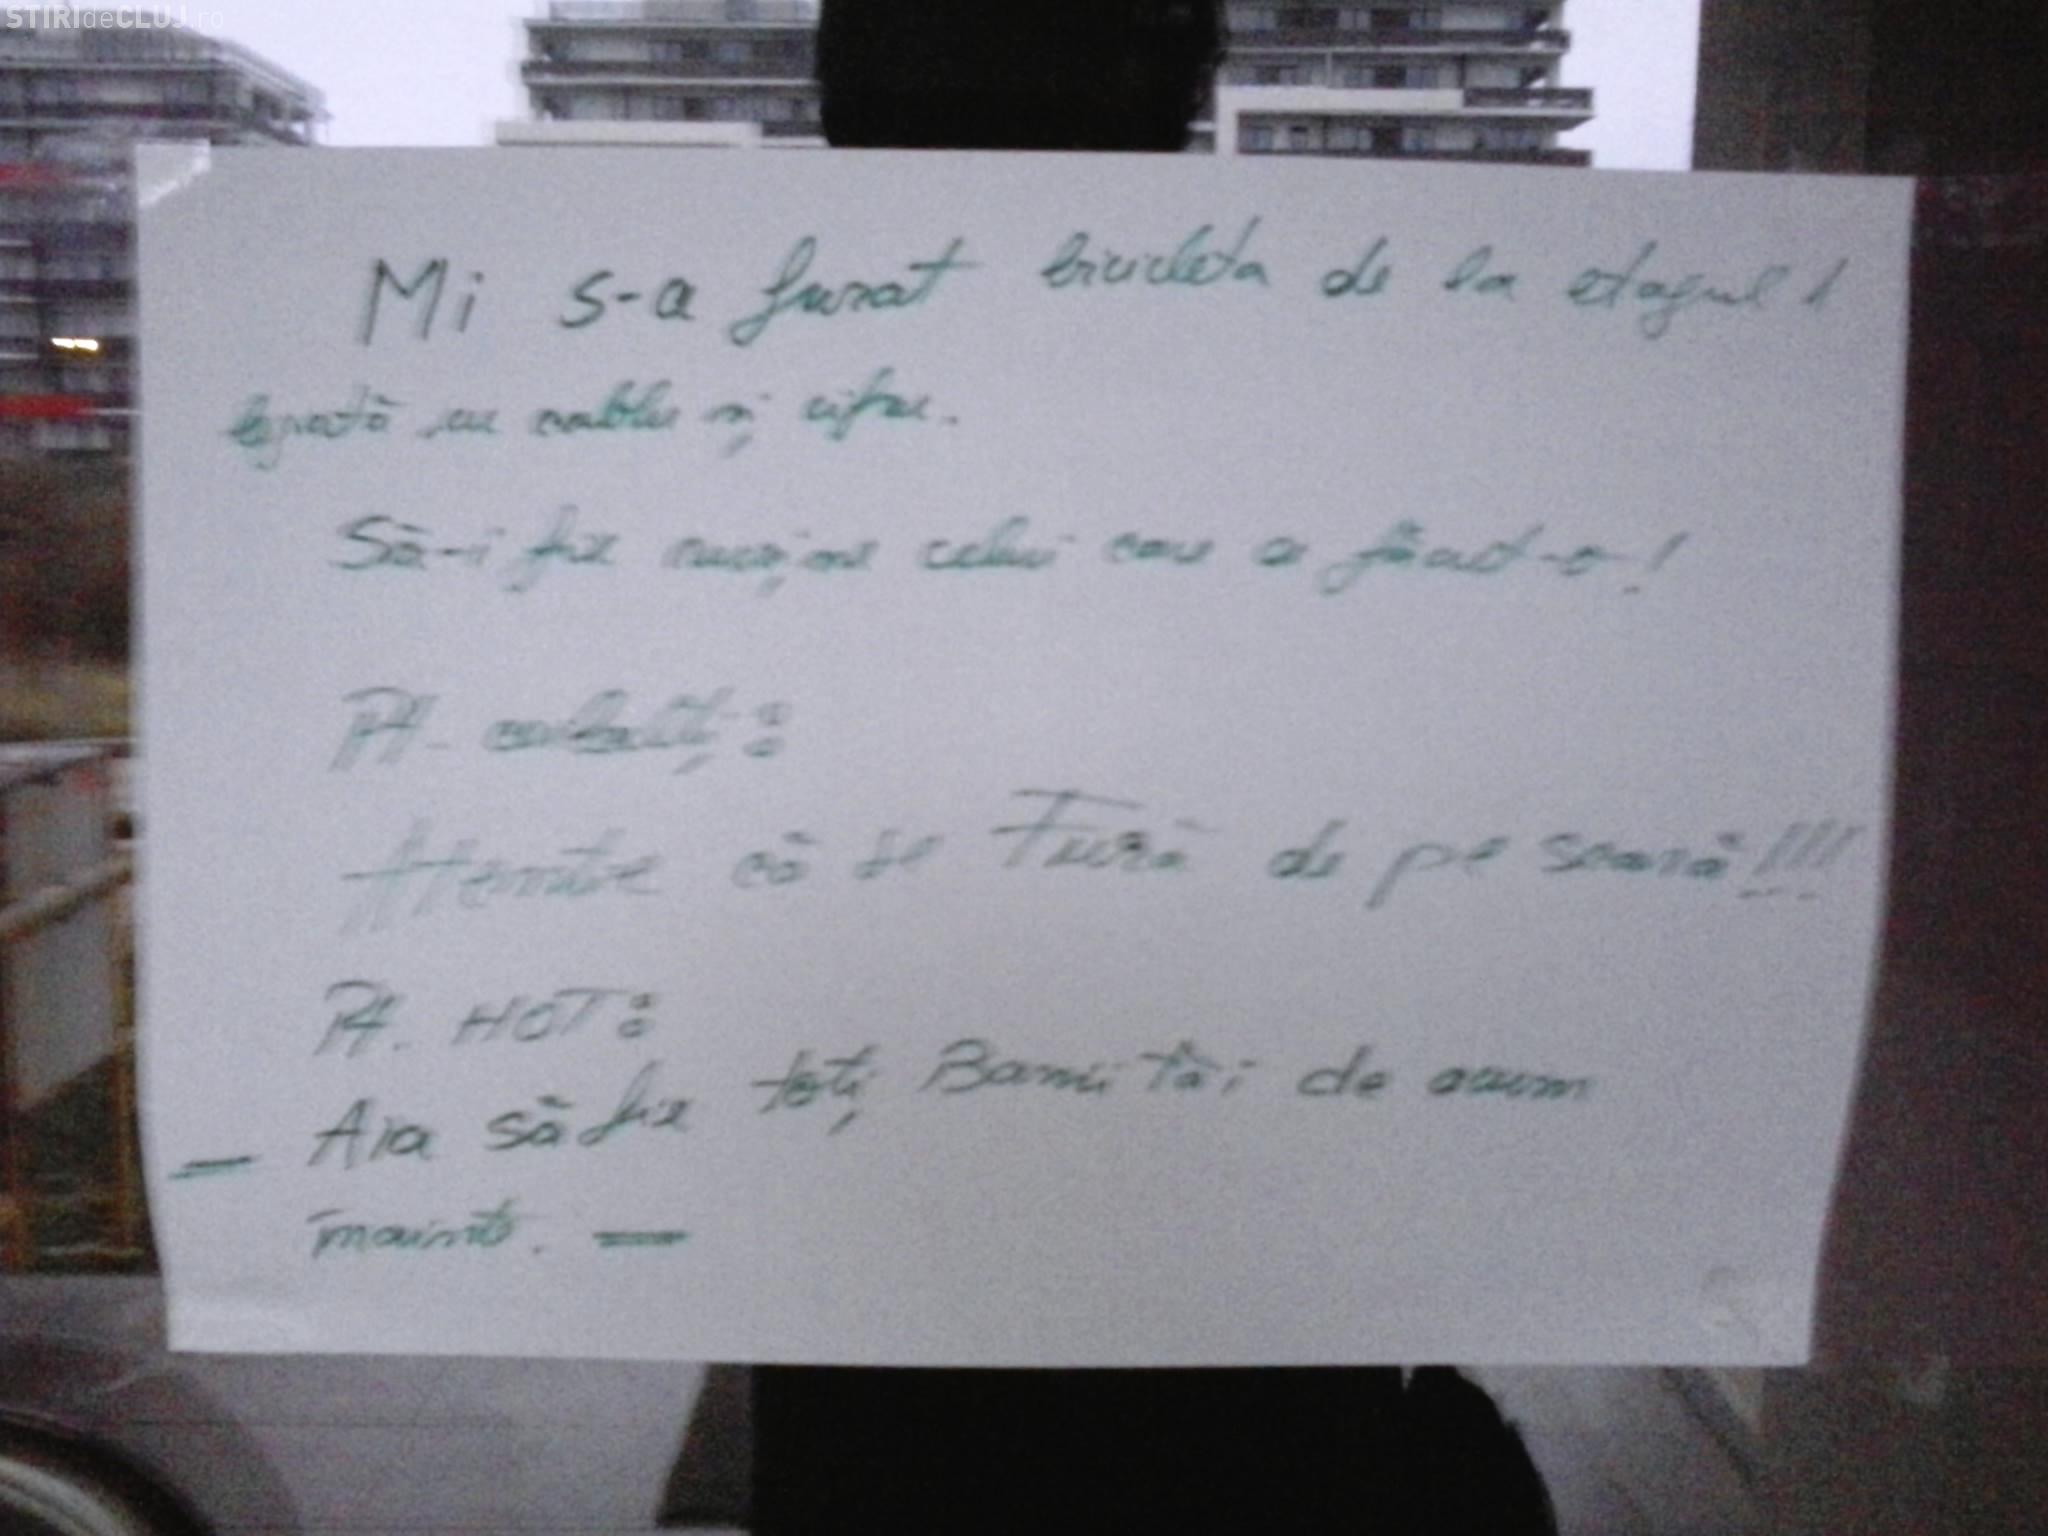 STIRIdeCLUJ.ro
Mi s-a furat bicicleta de la etajul 1
legată cu cablu și cifru.
Să-i fie rușine celui care a făcut-o!
Pt.
Atentie că se Fură de pe scară!!!
Pt. HOT:
— Aia să fie toți Banii tăi de acum
înainte. —